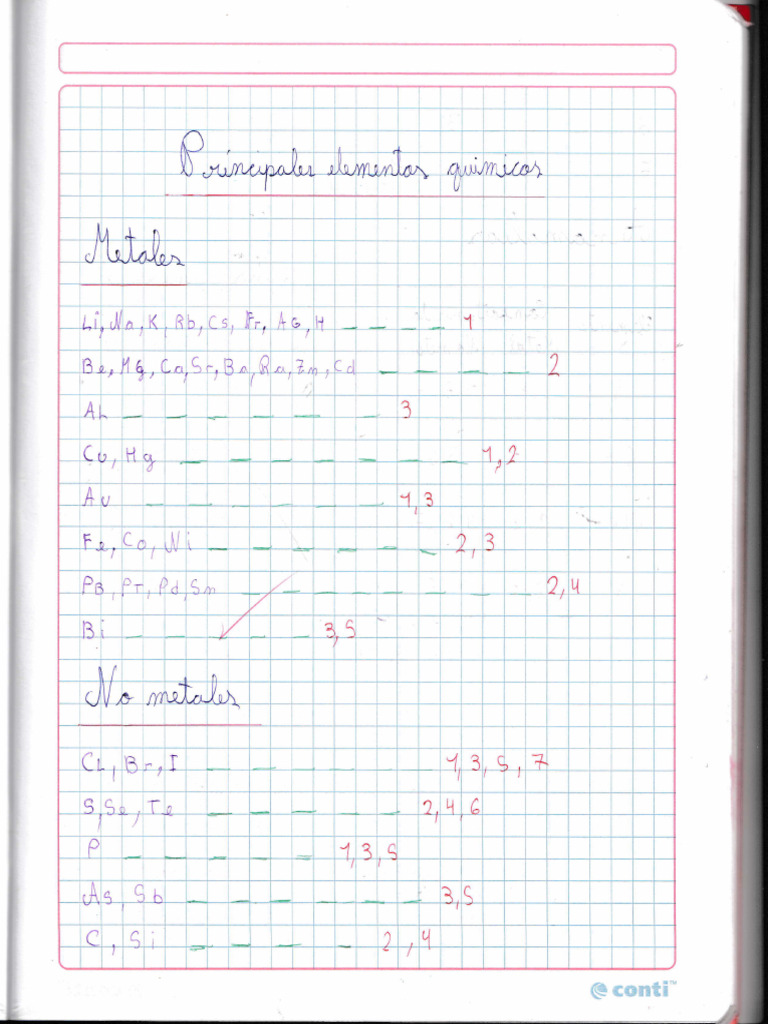 Principales elementos quimicos
Metales
Li, Na, K, Rb, Cs, Fr, AG, H _ _ _ _ 1
Be, Mg, Ca, Sr, Ba, Ra, Zn, Cd _ _ _ _ 2
AL _ _ _ _ _ _ _ 3
Cu, Hg _ _ _ _ _ _ _ 1,2
Au _ _ _ _ _ _ 1,3
Fe, Co, Ni _ _ _ _ _ _ 2,3
PB, PT, Pd, Sn _ _ _ _ _ _ _ _ 2,4
Bi _ _ _ _ _ 3,5
No metales
CL, Br, I _ _ _ _ _ _ 1,3,5,7
S, Se, Te _ _ _ _ _ 2,4,6
P _ _ _ _ _ 1,3,5
As, Sb _ _ _ _ _ _ _ 3,5
C, Si _ _ _ _ 2,4
conti™